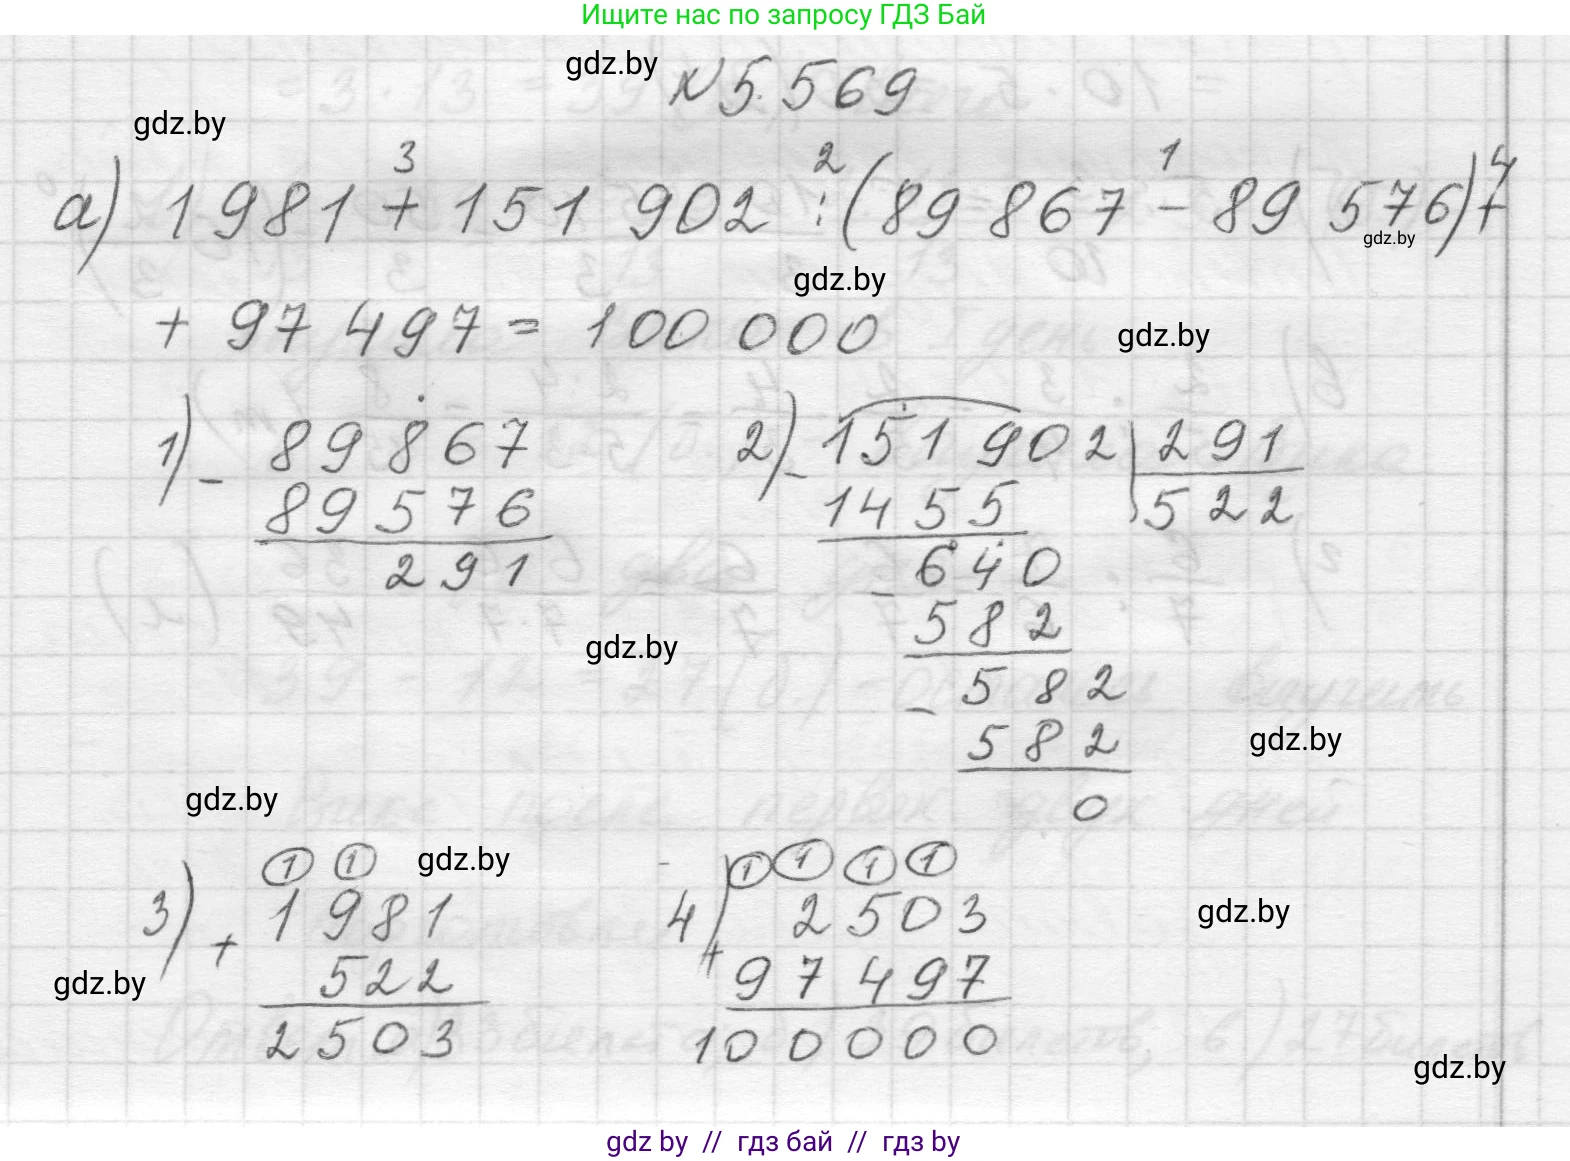 Ищите нас по запросу ГДЗ Бай
gdz.by
№ 5.569
gdz.by
3 2 1 4
а) 1981 + 151 902 : (89 867 - 89 576) +
gdz.by
gdz.by
+ 97 497 = 100 000
gdz.by
1) - 89867
89576
291
2) - 151902 | 291
1455 522
- 640
582
gdz.by
- 582
582
gdz.by
0
gdz.by
1 1
gdz.by
3) + 1981
522
2503
1 1 1 1
4) + 2503
97497
100000
gdz.by
gdz.by
gdz.by
gdz by // гдз бай // гдз by